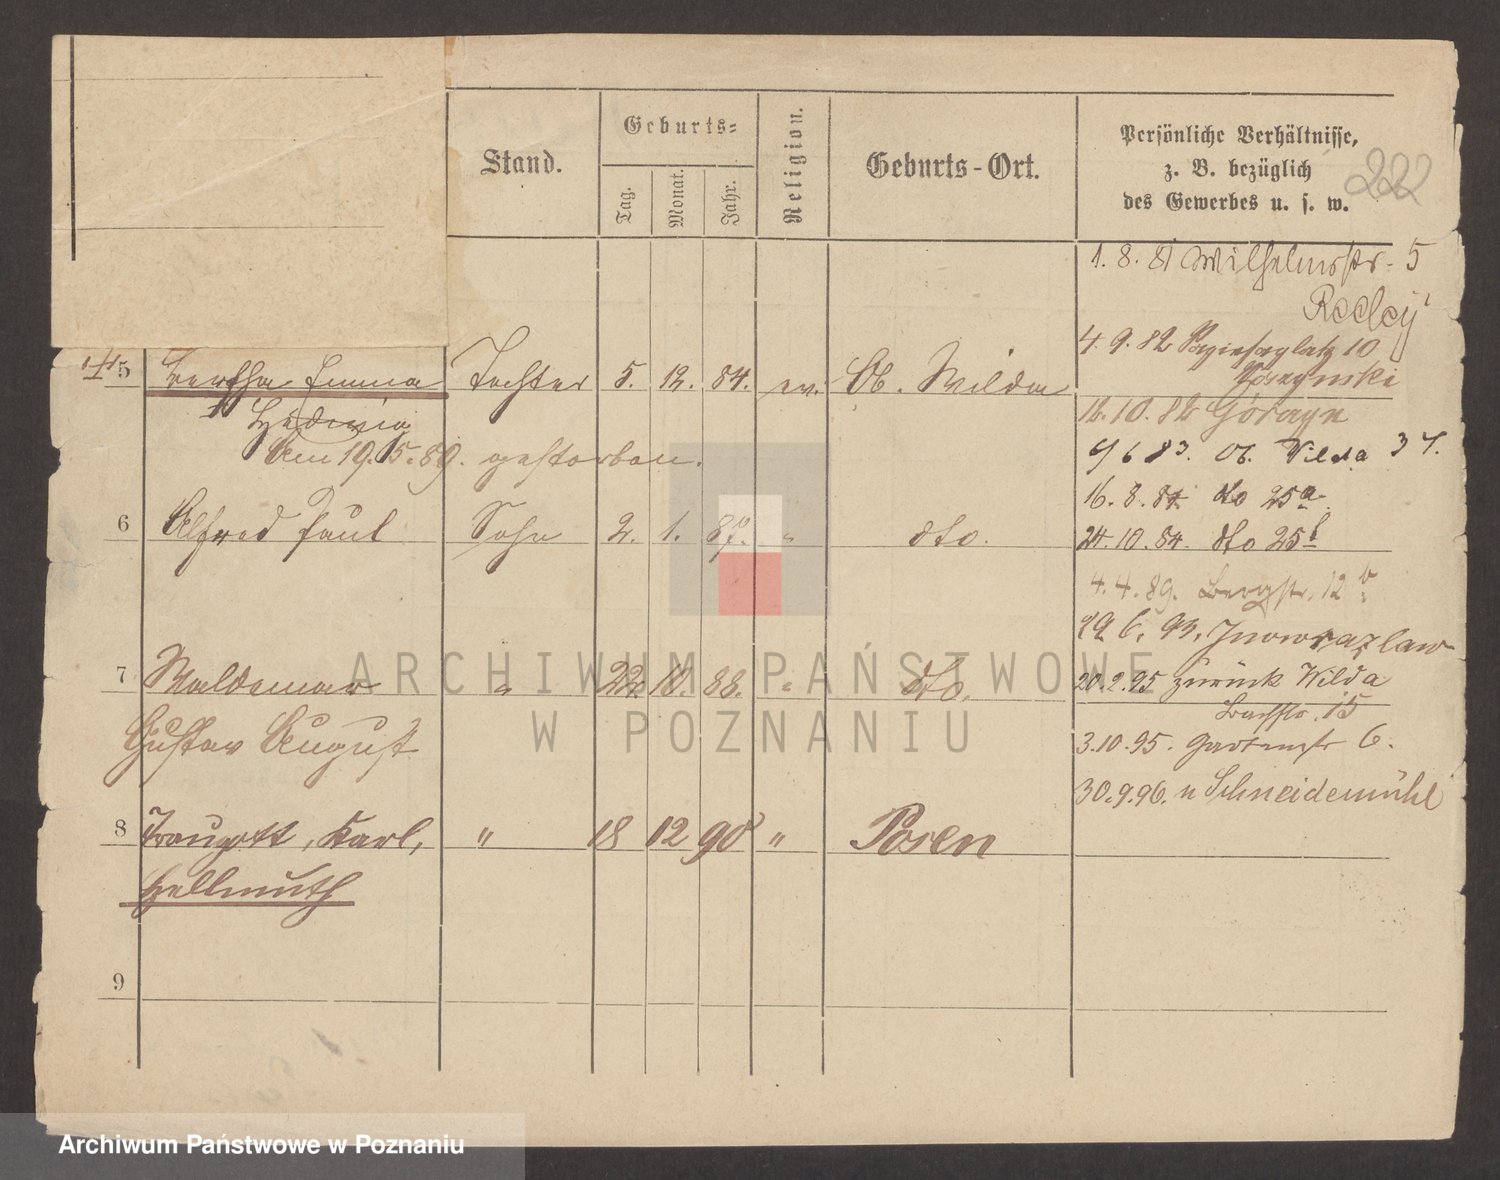 Stand.
Geburts-
Tag.
Monat.
Jahr.
Religion.
Geburts-Ort.
Persönliche Verhältnisse,
z. B. bezüglich
des Gewerbes u. s. w.
222
1. 8. 81 Wilhelmstr. 5
4. 9. 82 10
5 Bertha Emma Tochter 5. 12. 84. ev. Ob. Wilda
Hedwig
12. 10. 82
Am 19. 5. 89. gestorben.
6/6 83. Ob. Vilda 37.
16. 8. 84 do 25a
6 Alfred Paul Sohn 2. 1. 87. " dto.
24. 10. 84. dto 25b
4. 4. 89. Bergstr. 12b
29. 6. 93. Inowrazlaw
7 Waldemar " 22 10. 88. " dto.
20. 2. 95 zurück Wilda
Bachstr. 15
Gustav August
3. 10. 95. Gartenstr 6.
30. 9. 96. n Schneidemühl
8 Traugott, Karl, " 18 12 90 " Posen
Hellmuth
9
ARCHIWUM PAŃSTWOWE
W POZNANIU
Archiwum Państwowe w Poznaniu